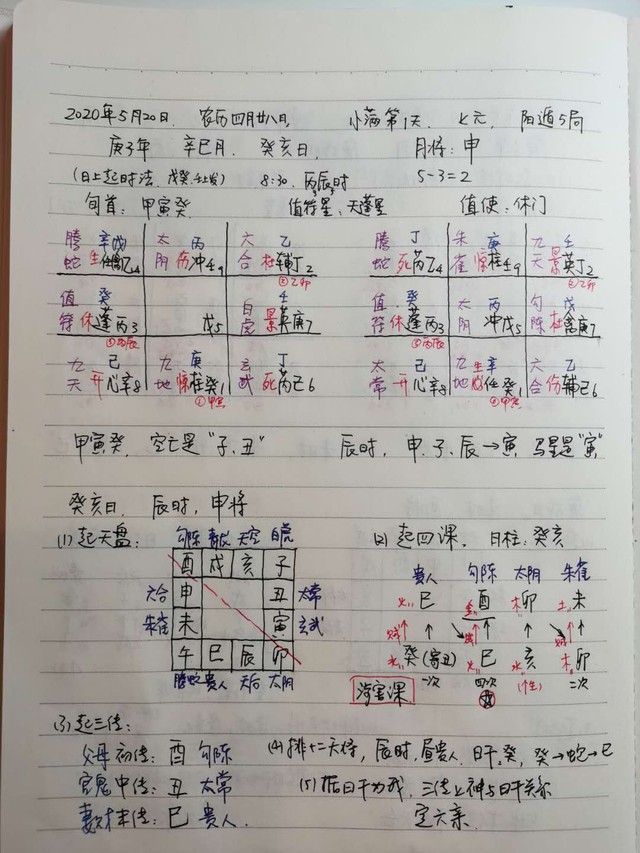 2020年5月20日. 农历四月廿八日, 小满第1天. 上元. 阳遁5局
庚子年 辛巳月. 癸亥日. 月将:申
(日上起时法. 戊癸壬上发) 8:30. 丙辰时 5-3=2
旬首: 甲寅癸. 值符星:天蓬星 值使:休门
腾 辛戊 太 丙 六 乙 腾 丁 朱 庚 九 壬
蛇 生任 乙4 阴 伤冲壬9 合 杜辅丁2 蛇 死芮乙4 雀 惊柱壬9 天 景英丁2
②乙卯 ②乙卯
值 癸 白 壬 值 癸 太 丙 勾 戊
符 休蓬丙3 戊5 虎 景英庚7 符 休蓬丙3 阴 冲戊5 陈 杜禽庚7
③丙辰 ③丙辰
九 己 九 庚 玄 丁 太 己 九 生辛 六 乙
天 开心辛8 地 惊柱癸1 武 死芮己6 常 开心辛8 地 任癸1 合 伤辅己6
①甲寅 ①甲寅
甲寅癸, 空亡是"子、丑" 辰时, 申.子、辰→寅, 马星是"寅"
癸亥日. 辰时, 申将
(1) 起天盘: 勾陈 青龙 天空 白虎 (2) 起四课, 日柱:癸亥
酉 戌 亥 子 贵人 勾陈 太阴 朱雀
六合 申 丑 太常 火 巳 金 酉 木 卯 土 未
朱雀 未 寅 玄武 贼 ↑ ↑ ↑ 贼 ↑
午 巳 辰 卯 水 癸(寄丑) 火 巳 水 亥 木 卯
腾蛇 贵人 天后 太阴 涉害课 一次 四次 (个生) 二次
(3) 起三传:
父母 初传: 酉 勾陈 (4) 排十二天将, 辰时.昼贵人. 日干:癸, 癸→蛇→巳
官鬼 中传: 丑 太常 (5) 据日干为我, 三传上神与日干关系
妻财 末传: 巳 贵人. 定六亲.